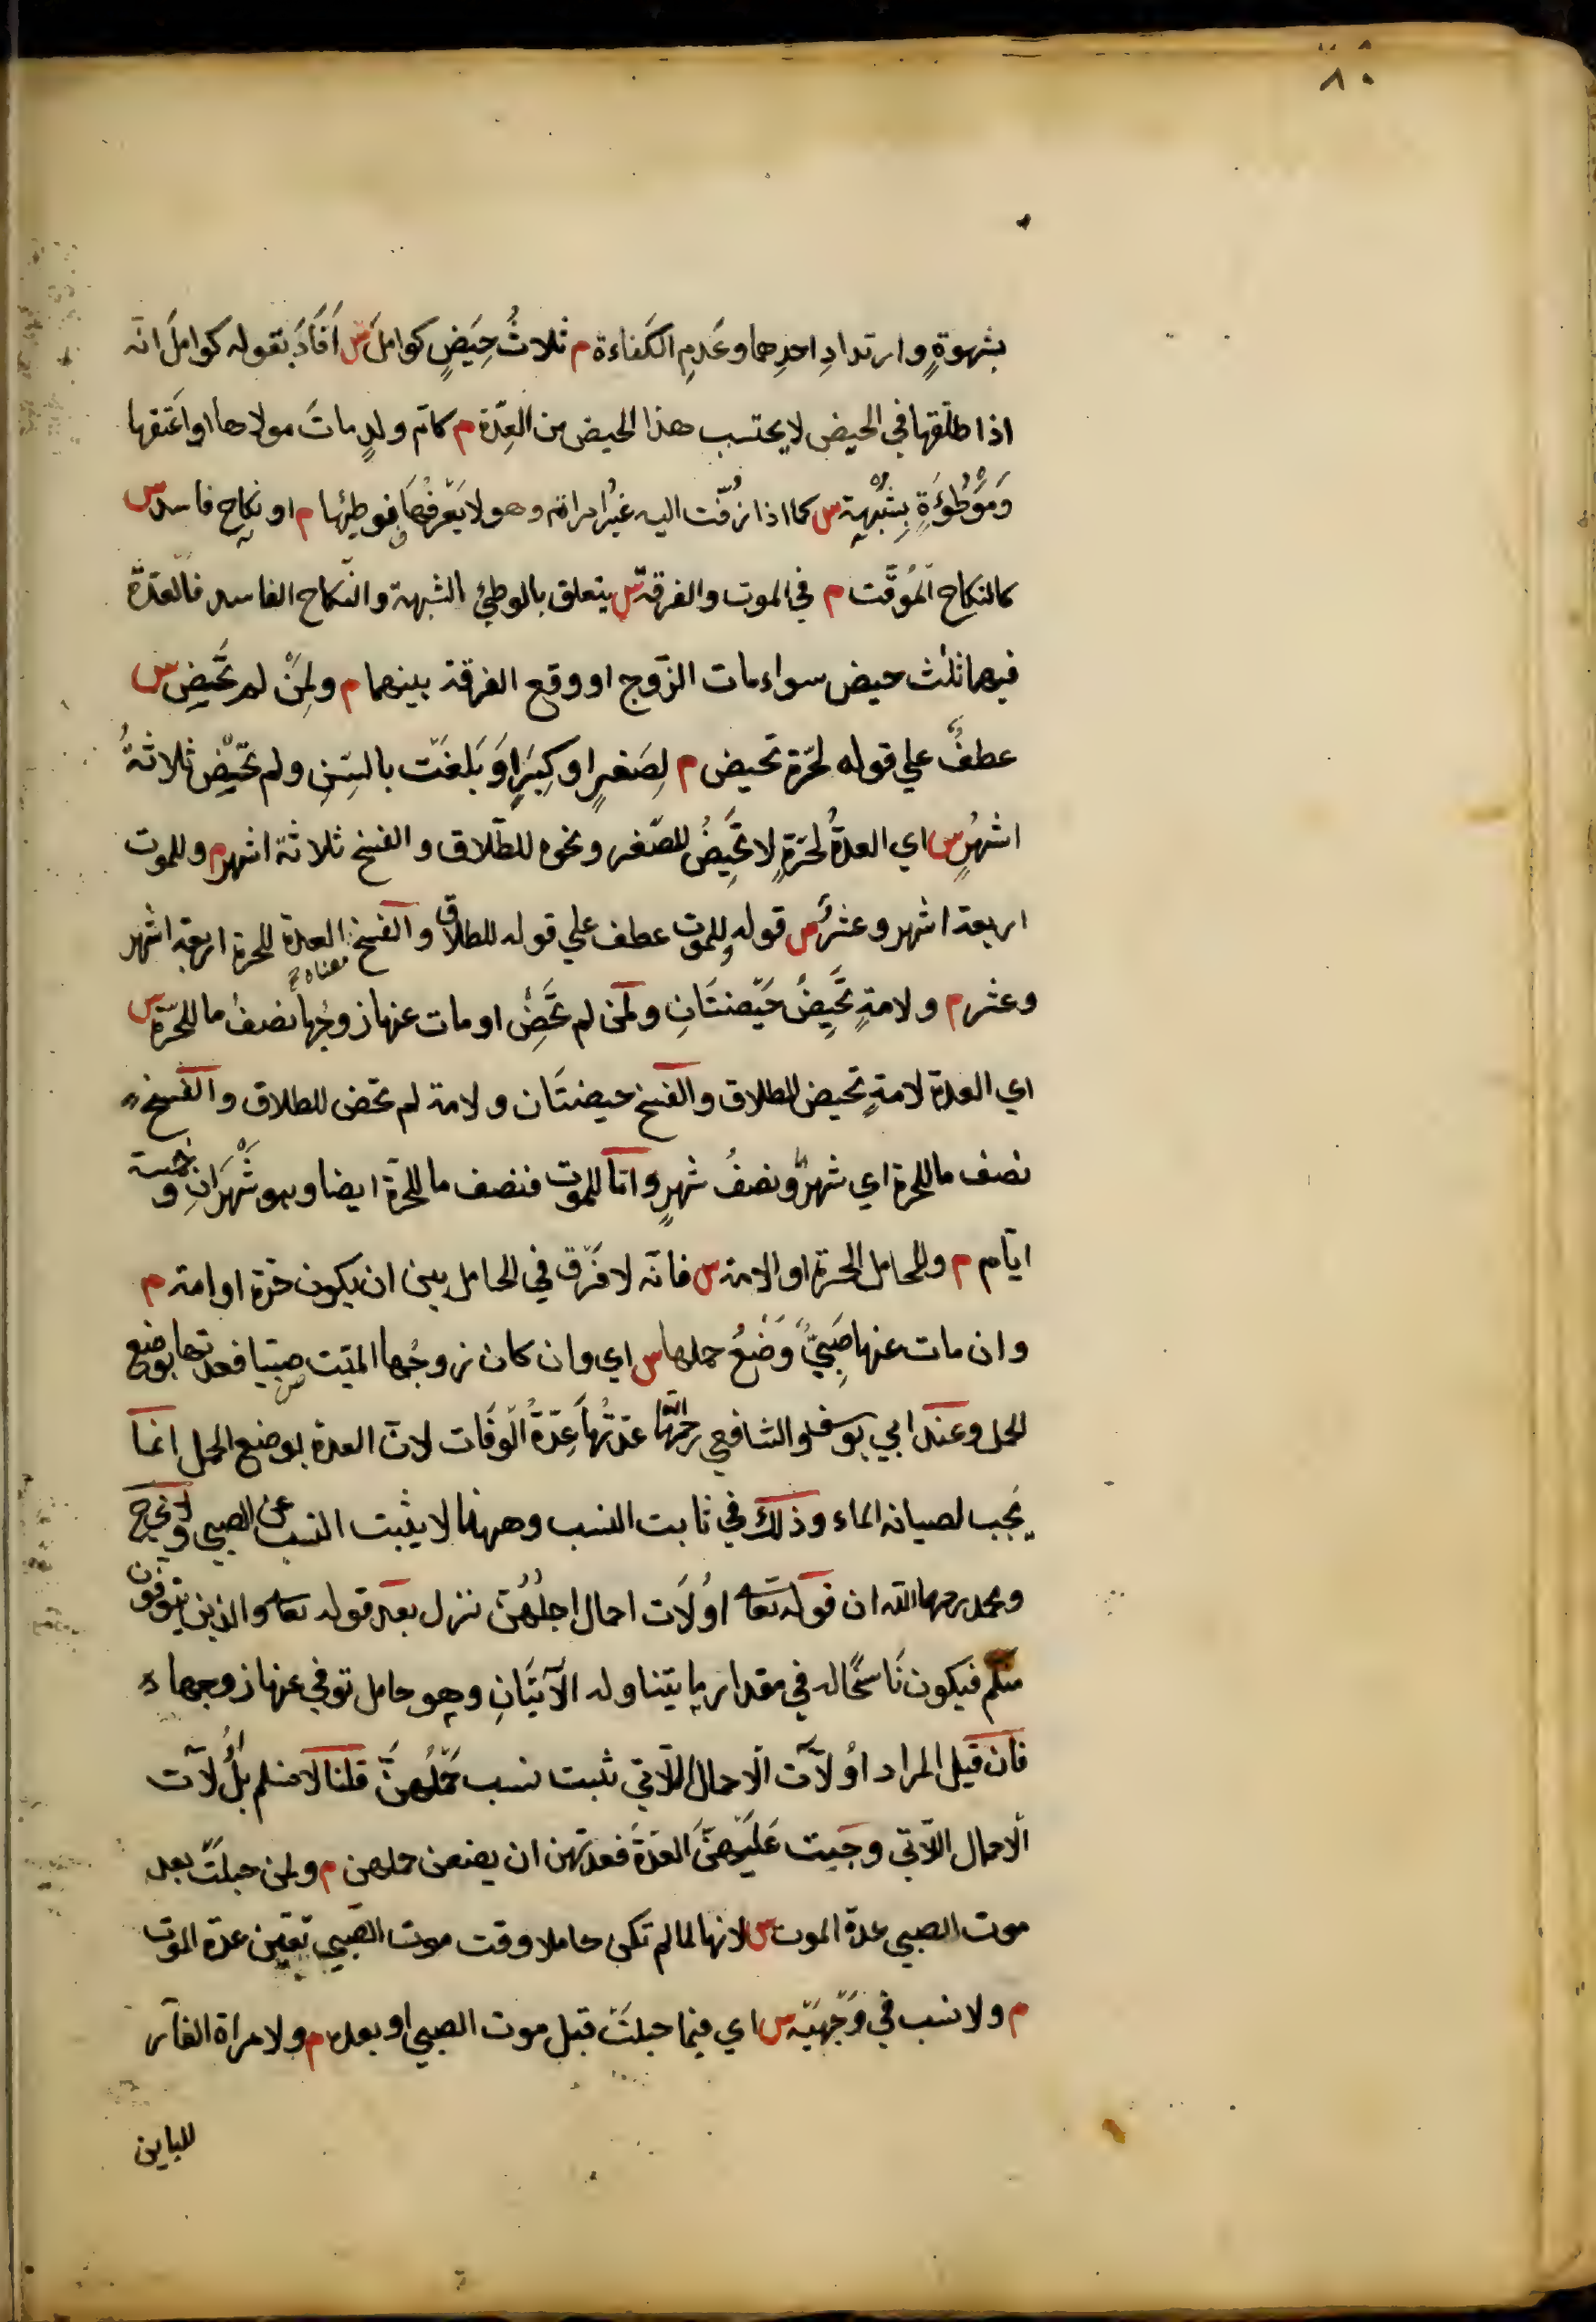 ٨٠
بشهوةٍ وارتدادِ احدِهما وعَدمِ الكَفاءة م ثلاثُ حِيَضٍ كواملَ س اَفَادَ بقوله كواملَ انّه
اذا طلّقها في الحيض لا يحتسب هذا الحيض من العِدّة م كامّ ولدٍ ماتَ مولاها او اَعتقها
وَمَوْطُوْءَةٍ بِشُبْهةٍ س كما اذا زُفّت اليه غيرُ امراته وهو لا يَعْرفُهَا فوطِئها م او نِكاحٍ فاسد س
كالنكاح المُوَقَّت م في الموت والفرقة س يتعلق بالوطئ الشبهة والنّكاح الفاسد فالعدّة
فيهما ثلث حيض سواء مات الزّوج او وقع الفرقة بينهما م ولِمَنْ لم تَحِيض س
عطفٌ علي قوله لحرّة تحيض م لِصَغرٍ او كِبَرٍ اَوَ بَلغَت بالسّنِ ولم تَحِيْض ثلاثةُ
اشهُرٍ س اي العدةُ لحرّةٍ لا تَحِيضُ للصّغر ونحوه للطّلاق والفسخ ثلاثة اشهر م وللموت
اربعة اشهر وعشرٌ س قوله وللموت عطف علي قوله للطلاق والفسخ معناه العدة للحرة اربعة اشهر
وعشر م ولامةٍ تَحِيضُ حَيْضتَانِ ولمن لم تَحِضْ او مات عنها زوجُها نصفُ ما للحرّة س
اي العدة لامةٍ تحيض للطلاق والفسخ حيضتَان ولامة لم تحض للطلاق والفسخ
نصف ما للحرة اي شهرٌ ونصفُ شهرٍ وامّا للموت فنصف ما للحرّة ايضا وهو شَهْرَانِ وخمسة
ايّام م وللحامل الحرّة او الامة س فانّه لا فَرْق في الحامل بين ان يكون حرّة او امة م
وان مات عنها صَبِيٌّ وَضْعُ حملها س اي وان كان زوجُها الميّت صبيّا فعدتها بوضع
الحمل وعند ابي يوسف والشافعي رحمهما الله عدّتُها عِدّةُ الوَفَات لانّ العدة بوضع الحمل انما
يجب لصيانة الماء وذلك في ثابت النسب وههنا لا يثبت النسب عن الصبي ولابي ح
ومحمد رحمهما الله ان قوله تعا اوُلَات احمال اجلُهُنّ نزل بعد قوله تعا والذين يتوفون
منكم فيكون نَاسخًا له في مقدار ما يتناوله الآيتَانِ وهو حامل توفي عنها زوجها
فان قيل المراد اوُلَآت الاحمال اللّاتي ثبت نسب حَمْلُهنَّ قلنا لا نسلم بل اُلَآت
الاحمال اللّاتي وجَبت عَلَيْهنَّ العدّةَ فعدتهن ان يضعن حملهن م ولمن حبلَتْ بعد
موت الصبي عدة الموت س لانها لما لم تكن حاملا وقت موت الصّبي تعيّن عدة الموت
م ولا نسب في وَجْهَيْه س اي فيما حبلَتْ قبل موت الصبي او بعده م ولامراة الفآر
للباين